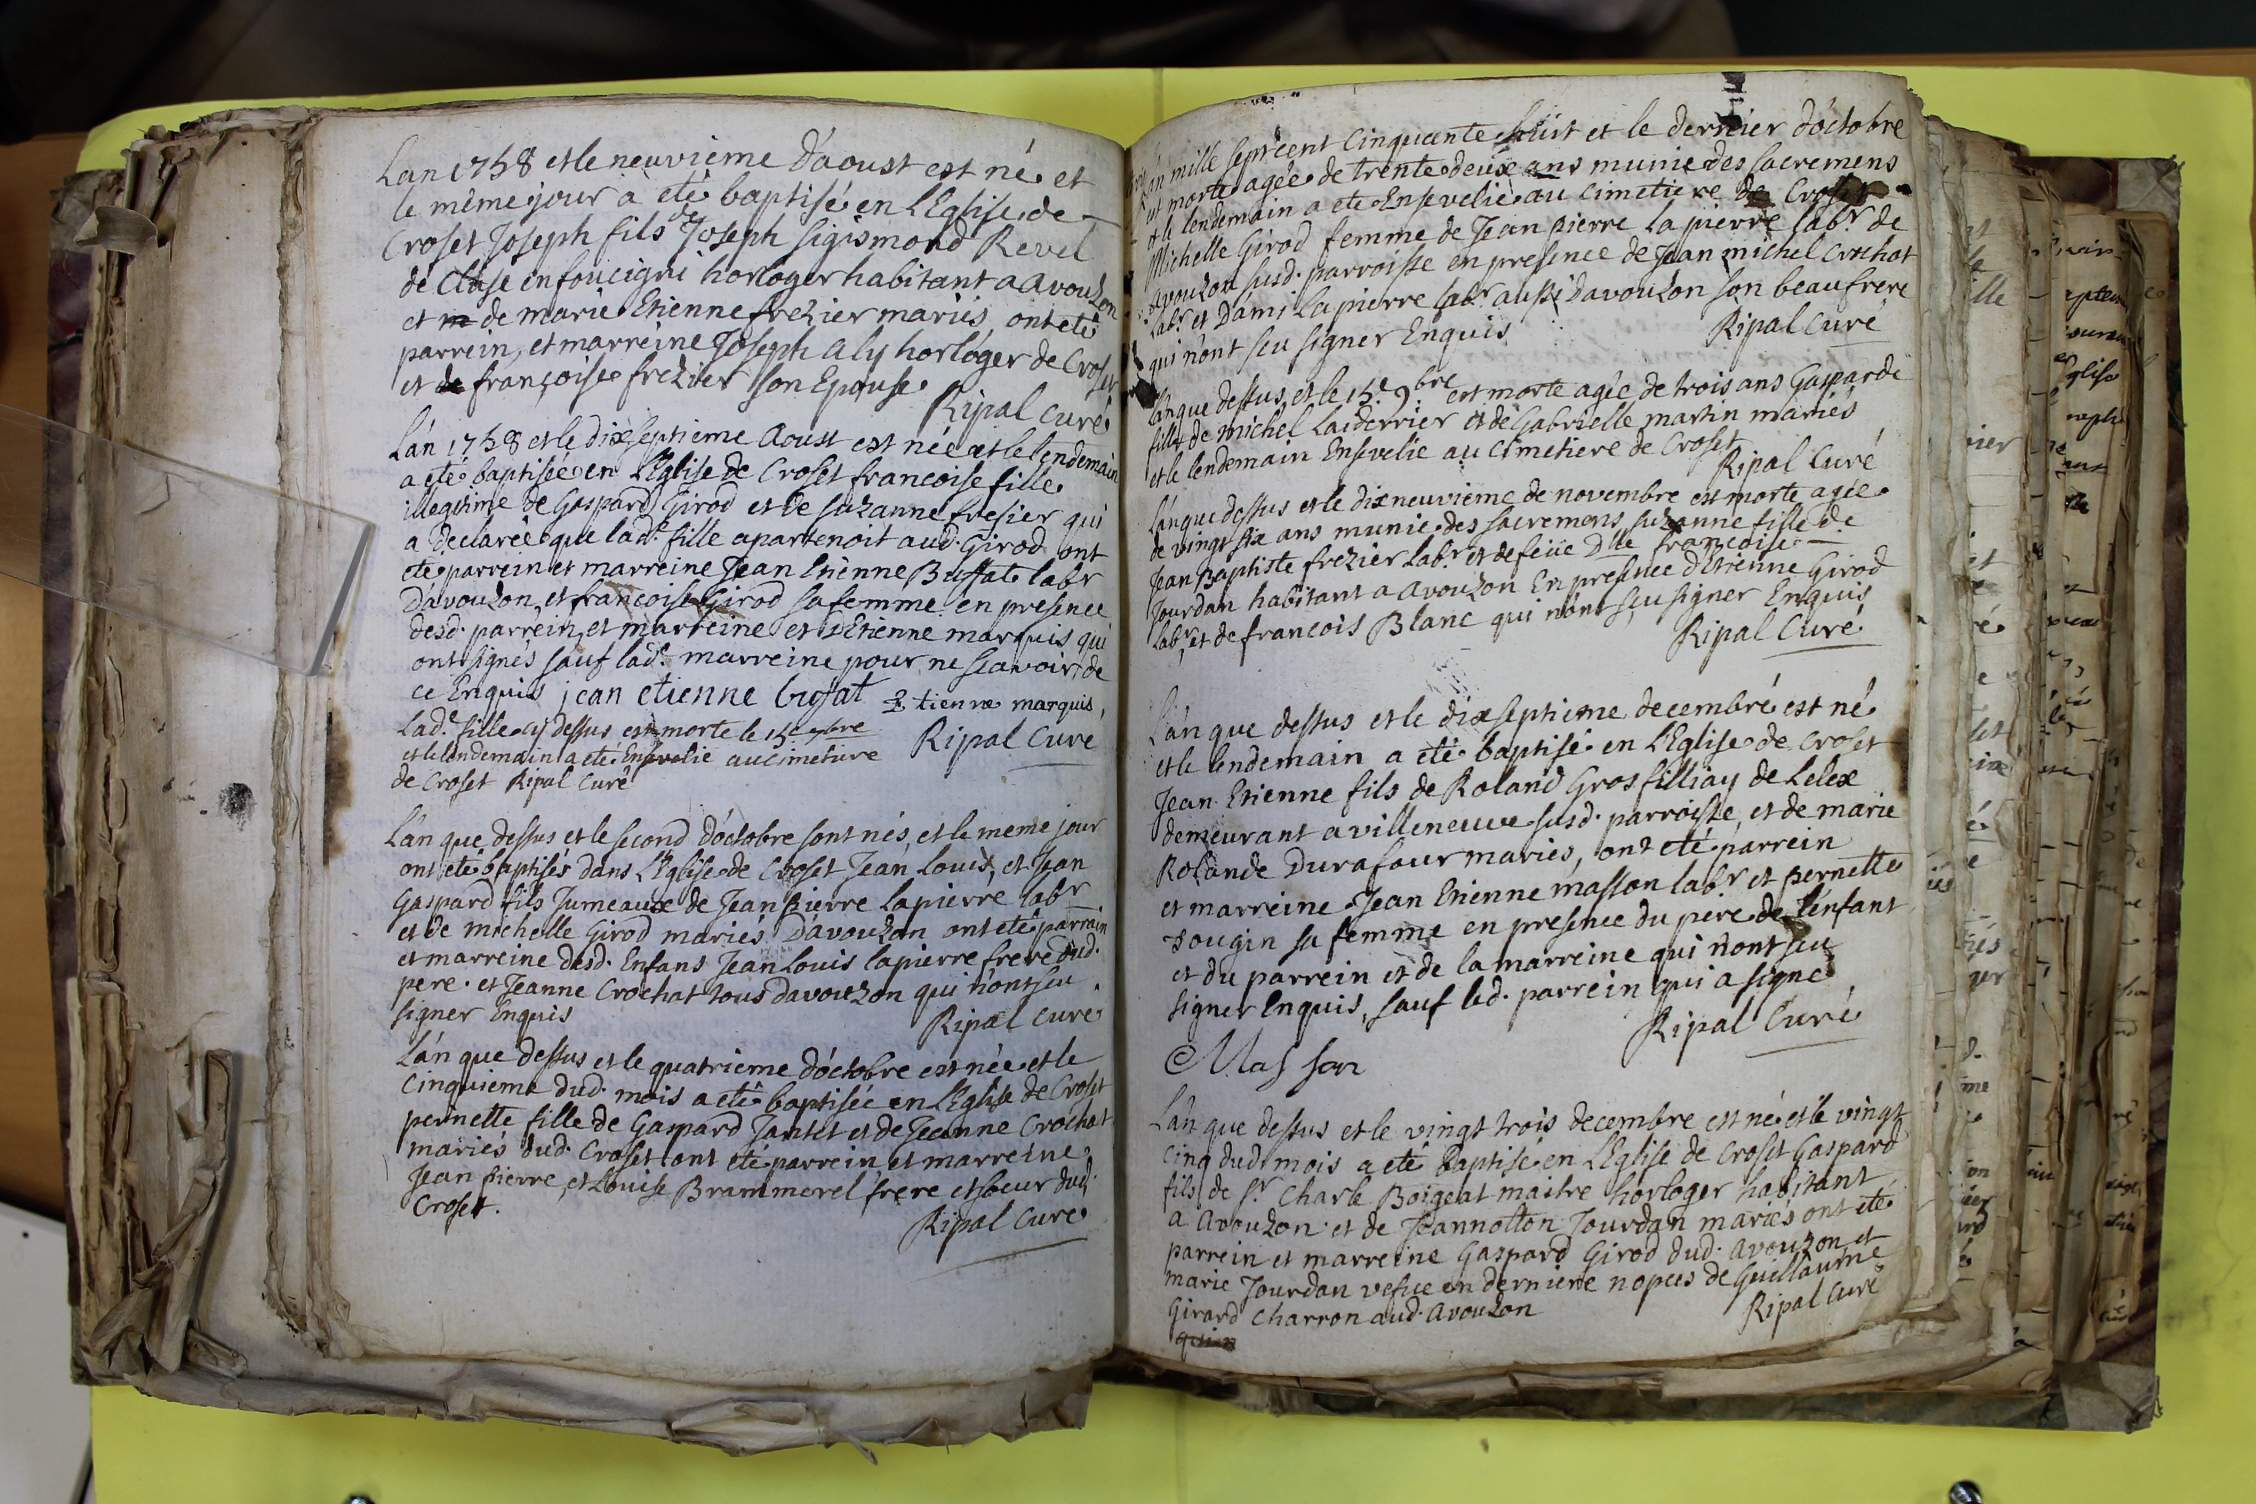 Lan 1758 et le neuvieme d'aoust est né et
le même jour a eté baptisé en l'Eglise de
Croset Joseph fils de Joseph Sigismond Revel
de Cluse en foucigni horloger habitant a Avouzon
et de marie Etienne frezier mariés, ont eté
parrein, et marreine Joseph Aly horloger de Croset
et françoise frezier son Epouse.
Ripal Curé
L'an 1758 et le dixseptieme Aoust est née et le lendemain
a eté baptisée en l'Eglise de Croset francoise fille
illegitime de Gaspard Girod et de Suzanne fresier qui
a declarée que lad.e fille apartenoit aud. Girod ont
eté parrein et marreine Jean Etienne Buffat lab.r
D'avouzon, et francoise Girod sa femme en presence
desd. parrein, et marreine et d'Etienne marquis qui
ont signés sauf lad.e marreine pour ne sçavoir de
ce Enquis jean etienne bufat Etienne marquis,
Lad.e fille cy dessus est morte le 15e 9bre
et le lendemain a eté Ensevelie au cimetiere
de Croset Ripal Curé
Ripal Curé
L'an que dessus et le second d'octobre sont nés, et le meme jour
ont eté baptisés dans l'Eglise de Croset Jean Louis, et Jean
Gaspard fils Jumeaux de Jean pierre Lapierre lab.r
et de michelle Girod mariés D'avouzon ont eté parrain
et marreine desd. Enfans Jean Louis lapierre frere dud.
pere. et Jeanne Crochat tous d'avouzon qui n'ont seu
signer Enquis
Ripal Curé
L'an que dessus et le quatrieme d'octobre est née et le
cinquieme dud. mois a eté baptisée en l'Eglise de Croset
pernette fille de Gaspard Jantet et de Jeanne Crochat
mariés dud. Croset ont eté parrein et marreine
Jean pierre, et Louise Brammerel frere et soeur dud.
Croset.
Ripal Curé
L'an mille sept cent cinquante huit et le dernier d'octobre
est morte agée de trente deux ans munie des sacremens
et le lendemain a eté Ensevelie au cimetiere de Croset
Michelle Girod femme de Jean pierre La pierre lab.r de
Avouzon susd. parroisse en presence de Jean michel Crochat
lab.r et Dami Lapierre lab.r aussi Davouzon son beaufrere
qui n'ont seu signer Enquis
Ripal Curé
L'an que dessus, et le 15.e 9.bre est morte agée de trois ans Gasparde
fille de michel Laiderrier et de Gabrielle martin mariés
et le lendemain Ensevelie au cimetiere de Croset
Ripal Curé
L'an que dessus et le dixneuvieme de novembre est morte agée
de vingt six ans munie des sacremens, suzanne fille de
Jean Baptiste frezier lab.r et de feüe Dlle françoise
Jourdan habitant a avouzon En presence d'Etienne Girod
lab.r, et de francois Blanc qui n'ont sçu signer Enquis
Ripal Curé
L'an que dessus et le dixseptieme decembre est né
et le lendemain a eté baptisé en l'Eglise de Croset
Jean Etienne fils de Roland Grosfilliay de Lelex
demeurant a villeneuve susd. parroisse, et de marie
Rolande Durafour mariés, ont eté parrein
et marreine Jean Etienne masson lab.r et pernette
Sougin sa femme en presence du pere de l'enfant
et du parrein et de la marreine qui n'ont seu
signer Enquis, sauf led. parrein qui a signé
Ripal Curé
Masson
L'an que dessus et le vingt trois decembre est né et le vingt
cinq dud. mois a eté baptisé en l'Eglise de Croset Gaspard
fils de S.r Charle Boigeat maitre horloger habitant
a Avouzon. et de Jeannotton Jourdan mariés ont eté
parrein et marreine Gaspard Girod dud. Avouzon et
marie Jourdan vefue en derniere nopces de Guillaume
Girard Charron aud. avouzon
Ripal Curé